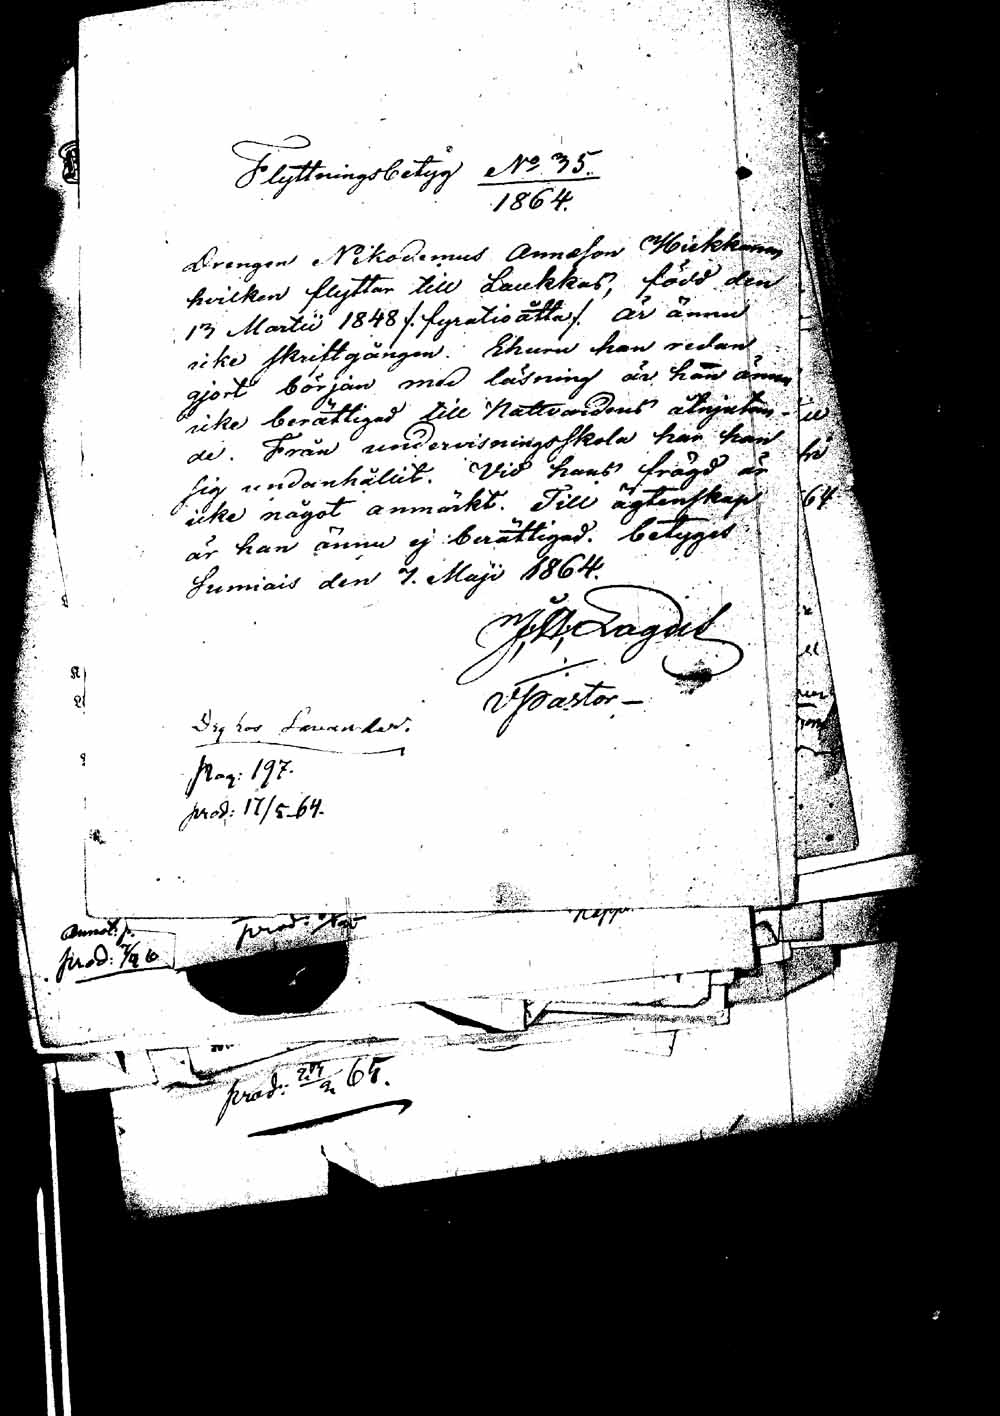 Flyttningsbetyg No 35.
1864.
Drengen Nikodemus Annæson
hvilken flyttar till Laukkas, född den
13 Martii 1848 /: fyratioåtta /: är ännu
icke skriftgången. Ehuru han redan
gjort början med läsning är han ännu
icke berättigad till Nattvardens åtnjutan-
de. Från undervisningsskola har han
sig undanhållit. Vid hans frägd är
icke något anmärkt. Till ägtenskap
är han ännu ej berättigad. betyges
Sumiais den 7. Maji 1864.
V Pastor
hos
Pag: 197.
prod: 17/5 64.
64
Annot: p.
prod:
prod:
prod: 65.